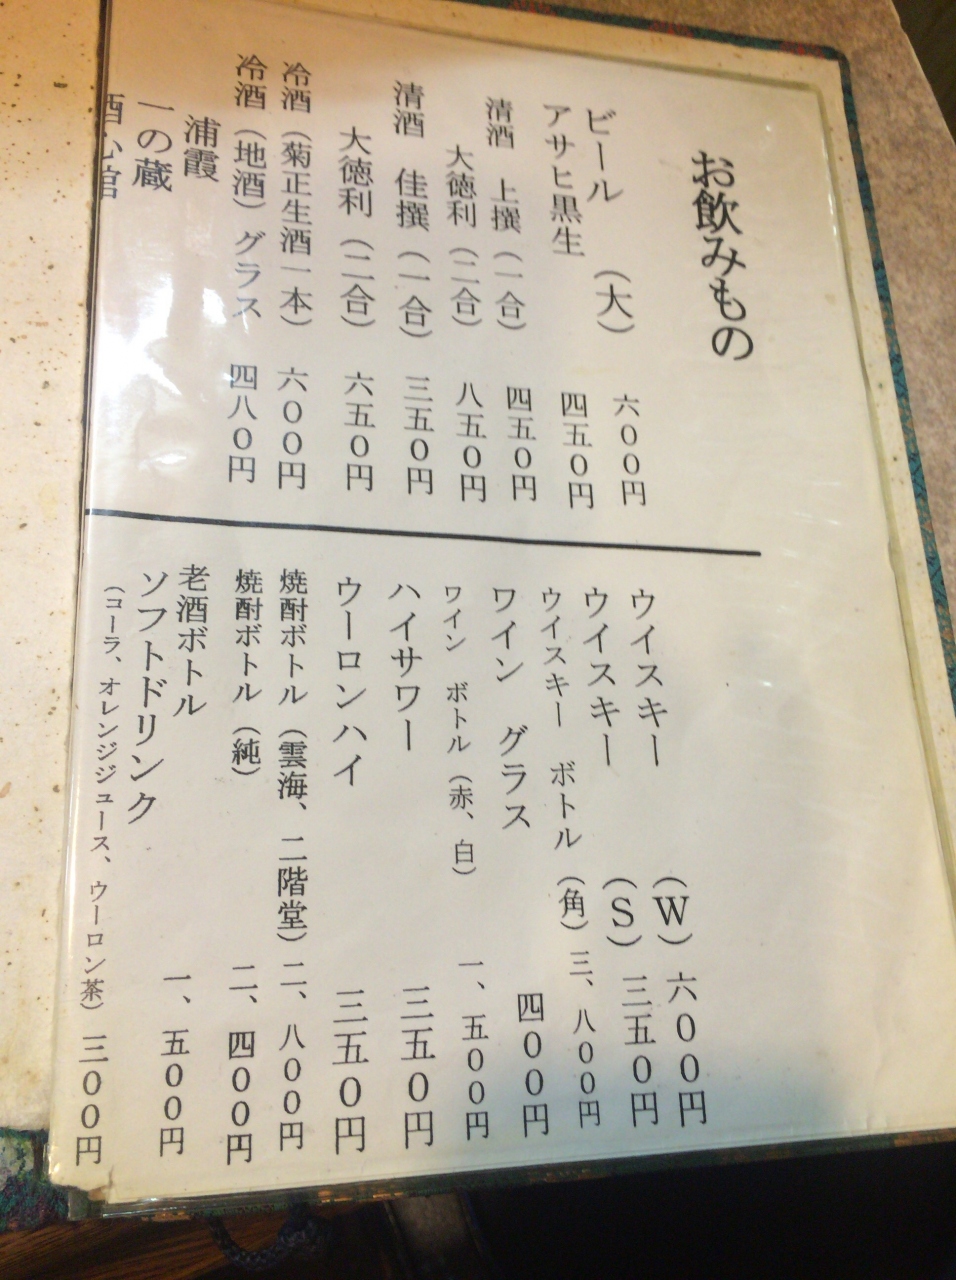 お飲みもの
ビール (大) 六００円
アサヒ黒生 四五０円
清酒 上撰 (一合) 四五０円
大徳利 (二合) 八五０円
清酒 佳撰 (一合) 三五０円
大徳利 (二合) 六五０円
冷酒 (菊正生酒一本) 六００円
冷酒 (地酒) グラス 四八０円
浦霞
一の蔵
酒心館
ウイスキー (W) 六００円
ウイスキー (S) 三五０円
ウイスキー ボトル (角) 三、八００円
ワイン グラス 四００円
ワイン ボトル (赤、白) 一、五００円
ハイサワー 三五０円
ウーロンハイ 三五０円
焼酎ボトル (雲海、二階堂) 二、八００円
焼酎ボトル (純) 二、四００円
老酒ボトル 一、五００円
ソフトドリンク
(コーラ、オレンジジュース、ウーロン茶) 三００円